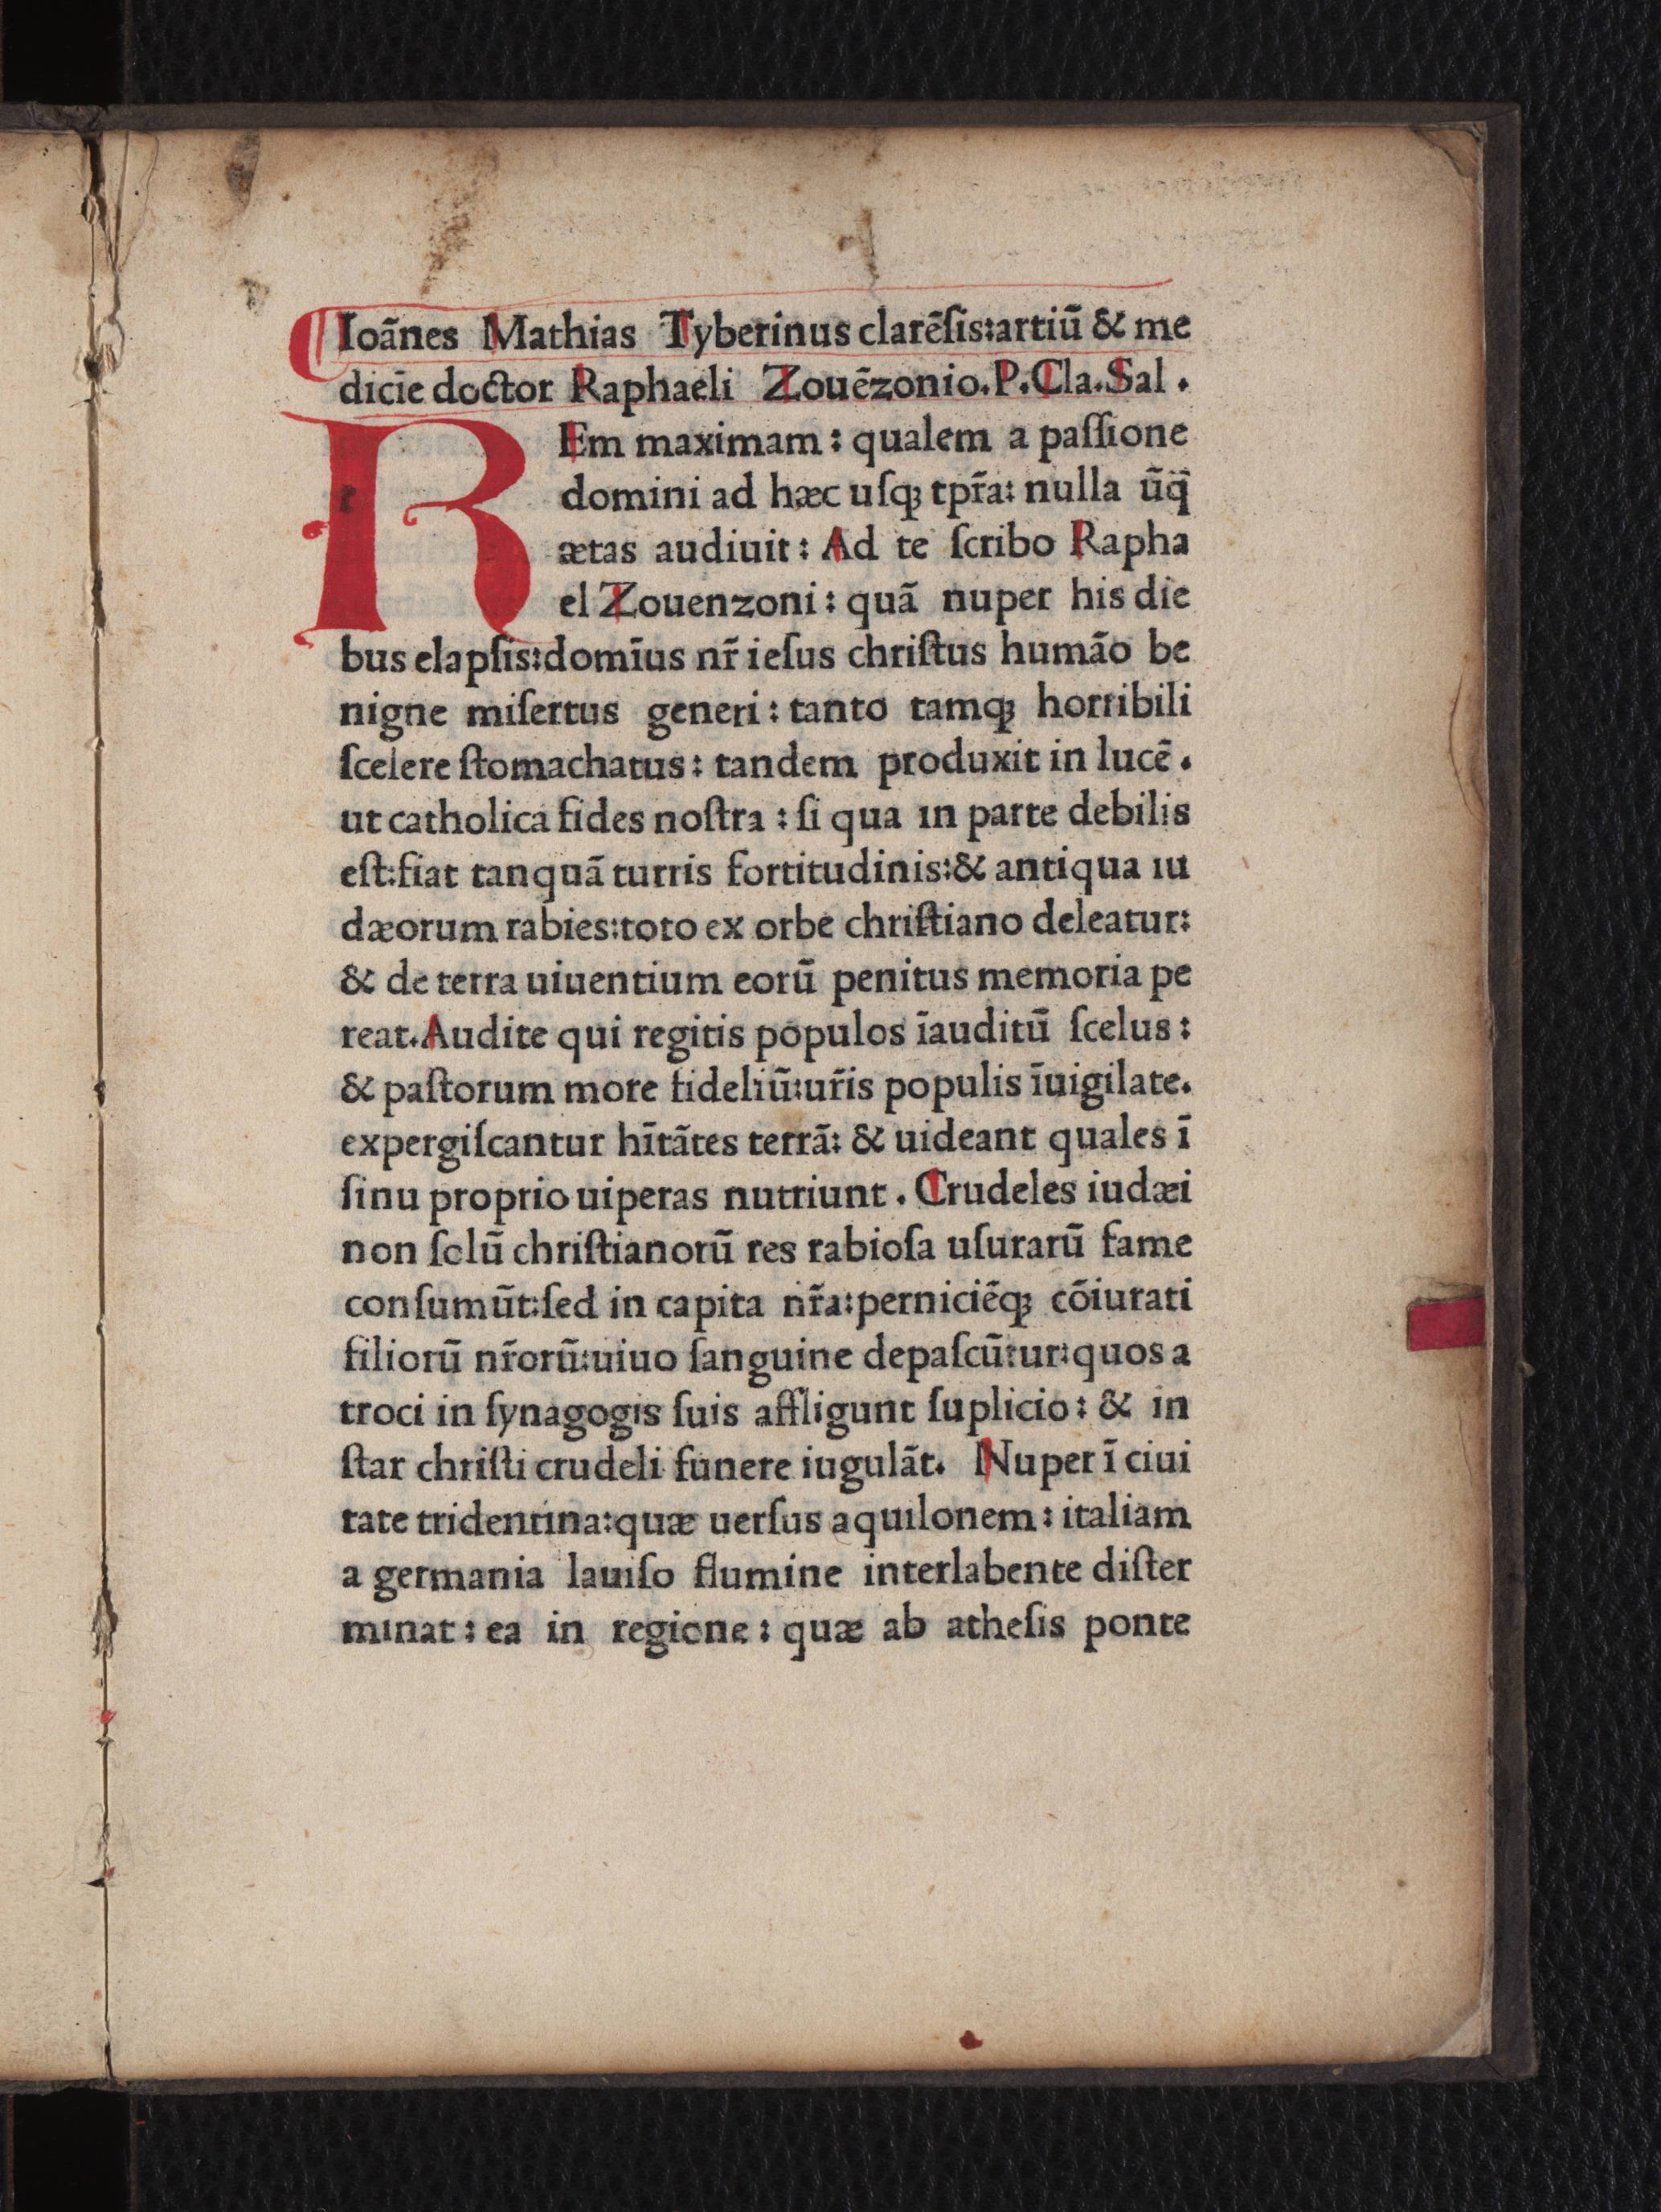 Ioãnes Mathias Tyberinus clarẽſis:artiũ & me
dicĩe doctor Raphaeli Zouẽzonio.P.Cla.Sal.
REm maximam: qualem a paſſione
domini ad hæc uſqꝫ tpr̃a: nulla ũq̃
ætas audiuit: Ad te ſcribo Rapha
el Zouenzoni: quã nuper his die
bus elapſis:domĩus nr̃ ieſus chriſtus humão be
nigne miſertus generi: tanto tamqꝫ horribili
ſcelere ſtomachatus: tandem produxit in lucẽ.
ut catholica fides noſtra: ſi qua ın parte debilis
eſt:fiat tanquã turris fortitudinis:& antiqua ıu
dæorum rabies:toto ex orbe chriſtiano deleatur:
& de terra uiuentium eorũ penitus memoria pe
reat.Audite qui regitis populos ĩauditũ ſcelus:
& paſtorum more fideliũ:ur̃is populis ĩuigilate.
expergiſcantur hĩtãtes terrã: & uideant quales ĩ
ſinu proprio uiperas nutriunt. Crudeles iudæi
non ſolũ chriſtianorũ res rabioſa uſurarũ fame
conſumũt:ſed in capita nr̃a:perniciẽqꝫ cõiurati
filiorũ nr̃orũ:uiuo ſanguine depaſcũtur:quos a
troci in ſynagogis ſuis affligunt ſuplicio: & in
ſtar chriſti crudeli funere iugulãt. Nuper ĩ ciui
tate tridentina:quæ uerſus aquılonem: italiam
a germania lauıſo flumine interlabente diſter
mınat: ea in regione: quæ ab atheſis ponte